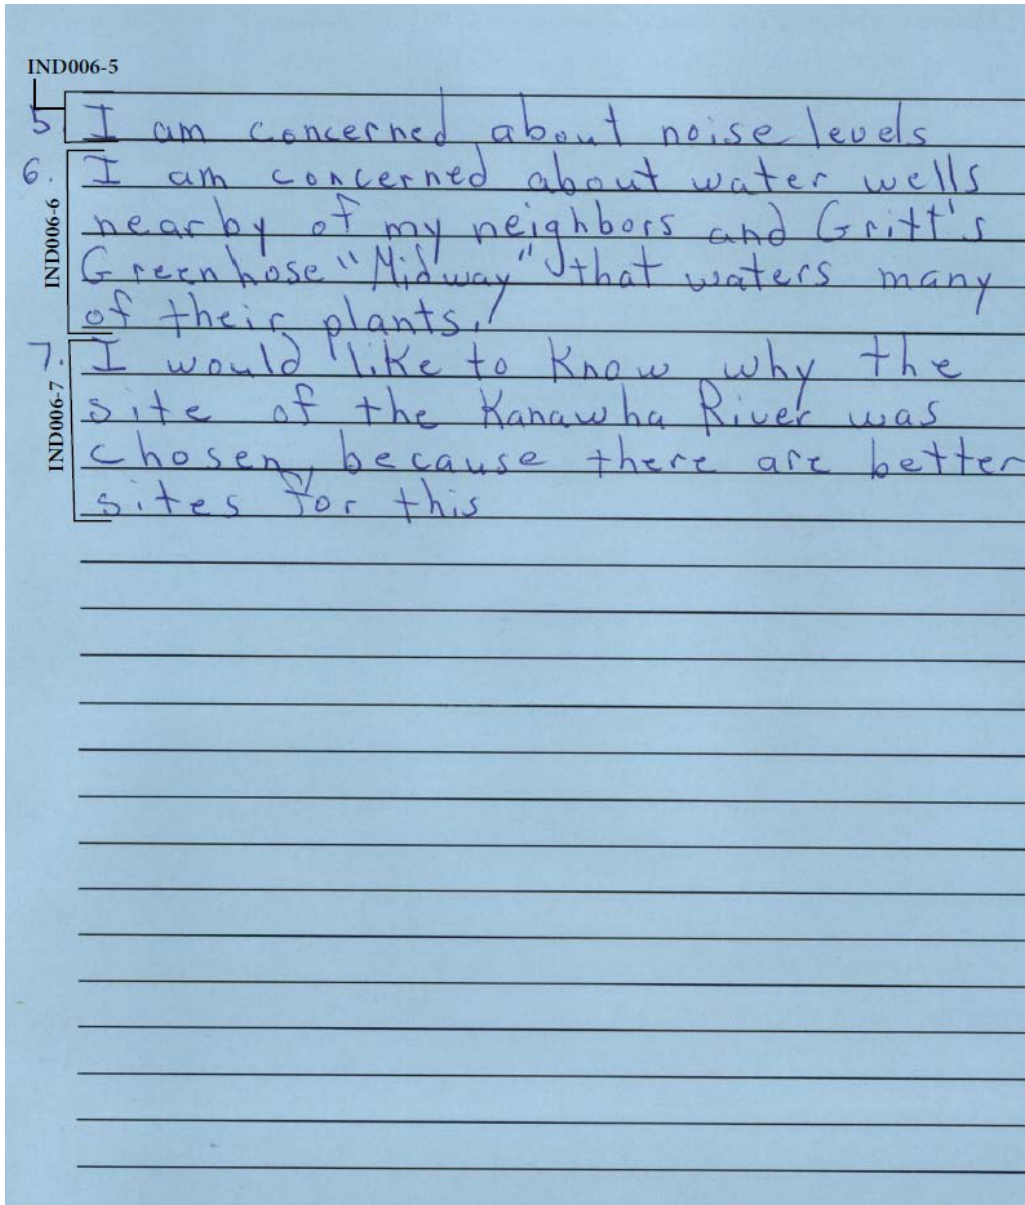 IND006-5
5 I am concerned about noise levels
6. I am concerned about water wells
IND006-6
nearby of my neighbors and Gritt's
Greenhose "Midway" that waters many
of their plants.
7. I would like to know why the
IND006-7
site of the Kanawha River was
chosen, because there are better
sites for this